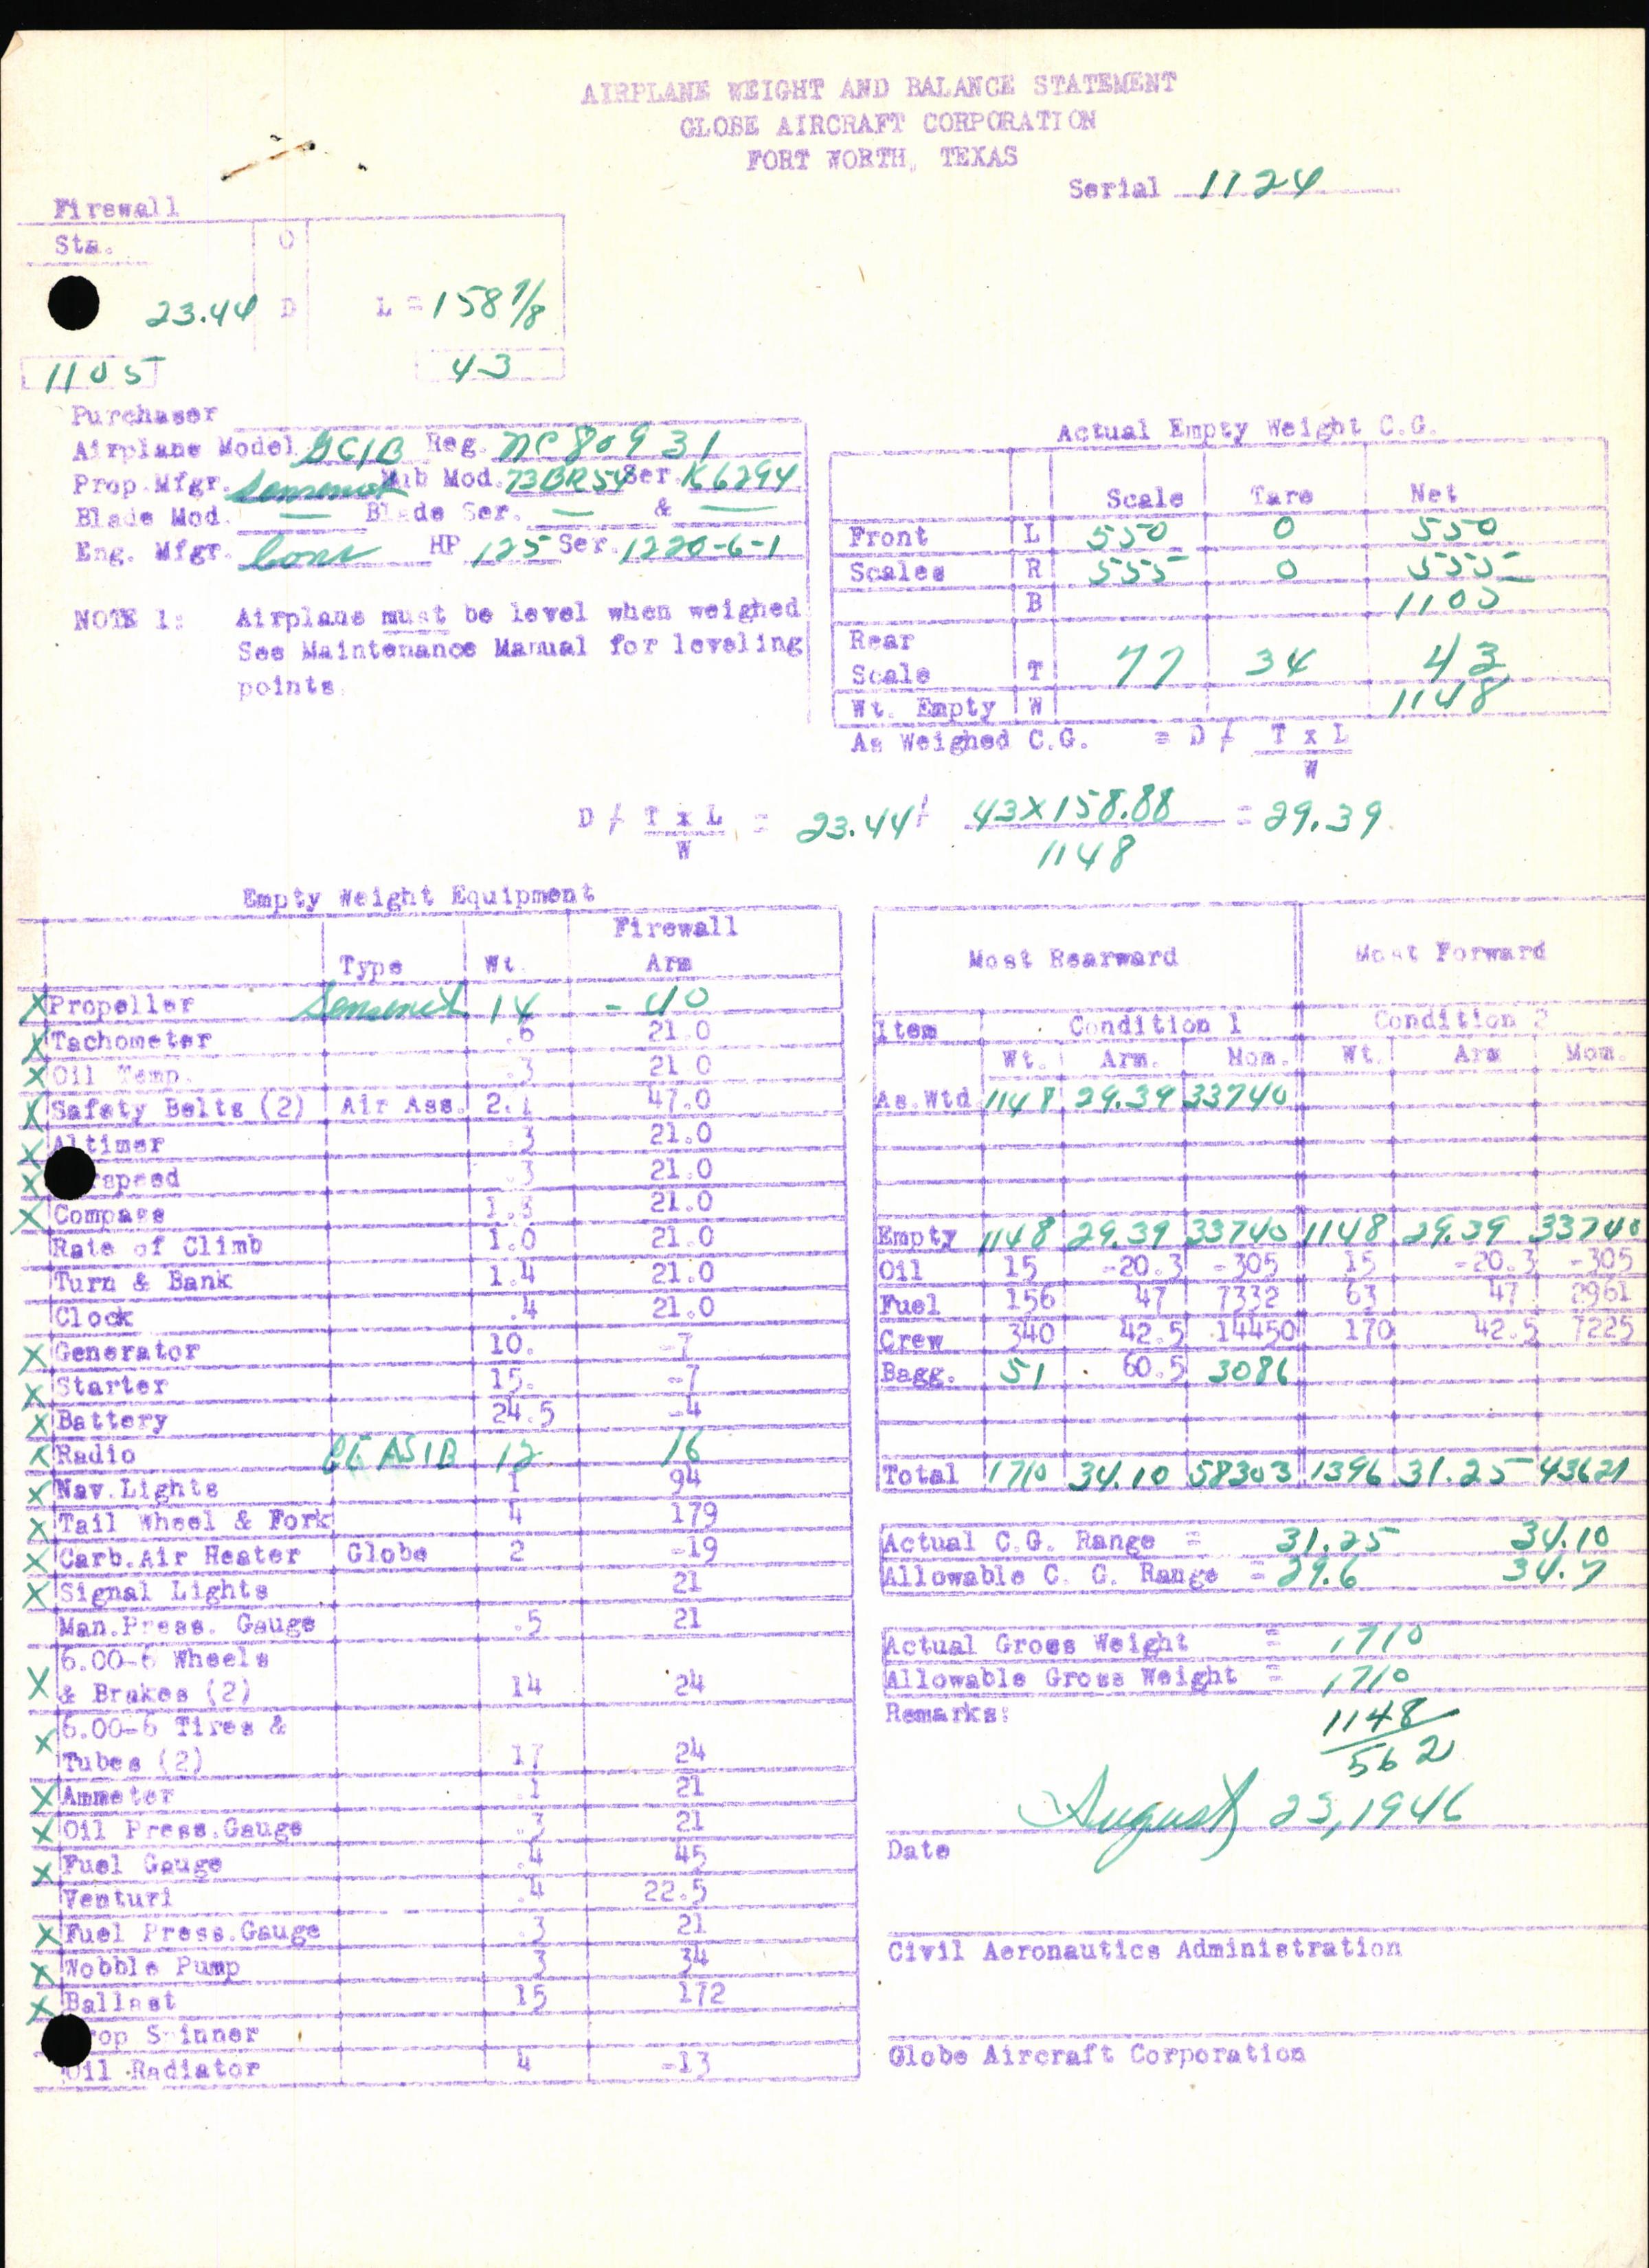 AIRPLANE WEIGHT AND BALANCE STATEMENT
GLOBE AIRCRAFT CORPORATION
FORT WORTH, TEXAS
Serial 1124
Firewall
Sta. O
23.44 D L = 158 7/8
1105 43
Purchaser
Airplane Model GC1B Reg. NC80931
Prop.Mfgr. Hub Mod. 73BR54 Ser. K6294
Blade Mod. — Blade Ser. — & —
Eng. Mfgr. Cons HP 125 Ser. 1220-6-1
NOTE 1: Airplane must be level when weighed
See Maintenance Manual for leveling
points.
Actual Empty Weight C.G.
Scale Tare Net
Front L 550 0 550
Scales R 555 0 555
B 1105
Rear
Scale T 77 34 43
Wt. Empty W 1148
As Weighed C.G. = D / T x L
W
D / T x L = 23.44 + 43x158.88 = 29.39
W 1148
Empty Weight Equipment
Firewall
Type Wt. Arm
X Propeller 14 -40
X Tachometer .6 21.0
X Oil Temp. .3 21 0
X Safety Belts (2) Air Ass. 2.1 47.0
X Altimer .3 21.0
X rspeed .3 21.0
X Compass 21.0
Rate of Climb 1.0 21.0
Turn & Bank 1.4 21.0
Clock .4 21.0
X Generator 10. -7
X Starter 15. -7
X Battery 24.5 -4
X Radio GE AS1B 12 16
X Nav.Lights 1 94
X Tail Wheel & Fork 4 179
X Carb.Air Heater Globe 2 -19
X Signal Lights 21
Man.Press. Gauge .5 21
6.00-6 Wheels
X & Brakes (2) 14 24
X 6.00-6 Tires &
Tubes (2) 17 24
X Ammeter .1 21
X Oil Press.Gauge .3 21
X Fuel Gauge .4 45
Venturi .4 22.5
X Fuel Press.Gauge .3 21
X Wobble Pump 3 34
X Ballast 15 172
rop S inner
Oil Radiator 4 -13
Most Rearward Most Forward
Item Condition 1 Condition 2
Wt. Arm. Mom. Wt. Arm Mom.
As Wtd 1148 29.39 33740
Empty 1148 29.39 33740 1148 29.39 33740
Oil 15 -20.3 -305 15 -20.3 -305
Fuel 156 47 7332 63 47 2961
Crew 340 42.5 14450 170 42.5 7225
Bagg. 51 60.5 3086
Total 1710 34.10 58303 1396 31.25 43621
Actual C.G. Range = 31.25 34.10
Allowable C. G. Range = 29.6 34.7
Actual Gross Weight = 1710
Allowable Gross Weight = 1710
Remarks: 1148
562
August 23, 1946
Date
Civil Aeronautics Administration
Globe Aircraft Corporation